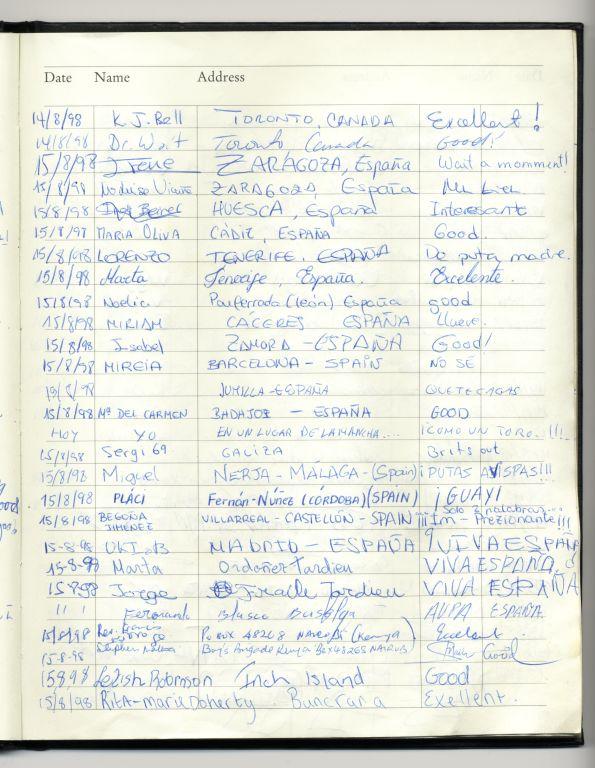 Date Name Address
14/8/98 K J. Bell TORONTO, CANADA Excellent!
14/8/98 Dr. Toronto Canada Good!
15/8/98 Irene ZARAGOZA, España Wait a momment!
15/8/98 ZARAGOZA, España
15/8/98 HUESCA, España Interesante
15/8/98 MARIA OLIVA CÁDIZ, ESPAÑA Good.
15/8/98 LORENZO TENERIFE. ESPAÑA De puta madre.
15/8/98 Marta Tenerife, España. Excelente.
15/8/98 Noelia Ponferrada (León) España good
15/8/98 MIRIAM CÁCERES ESPAÑA Llueve.
15/8/98 Isabel ZAMORA - ESPAÑA Good!
15/8/98 MIREIA BARCELONA - SPAIN NO SÉ
JUMILLA - ESPAÑA QUETECAGAS
15/8/98 Mª DEL CARMEN BADAJOZ - ESPAÑA GOOD
HOY YO EN UN LUGAR DE LA MANCHA.... ¡COMO UN TORO..!!!
15/8/98 Sergi 69 GALIZA Brits out
15/8/98 Miguel NERJA - MÁLAGA - (Spain) ¡PUTAS AVISPAS!!!
15/8/98 PLÁCI Fernán-Núñez (CÓRDOBA) (SPAIN) ¡GUAY!
15/8/98 BEGOÑA JIMÉNEZ VILLARREAL - CASTELLÓN - SPAIN ... Solo 2 palabras... ¡¡¡Im - Prezionante!!!
15-8-98 MADRID - ESPAÑA VIVA ESPAÑA
15-8-98 Marta Ordoñez Tardieu VIVA ESPAÑA.
15-8-98 Jorge Fraile Tardieu VIVA ESPAÑA
11 1 Fernando Blasco AUPA ESPAÑA.
15/8/98 Rev. P.O BOX 48268 NAIROBI (Kenya) Excelent.
15-8-98 Stephen Boys Brigade Kenya Box 48268 NAIROBI Good
15898 Leish Robinson Inch Island Good
15/8/98 Rita-marie Doherty. Buncrana Exellent.